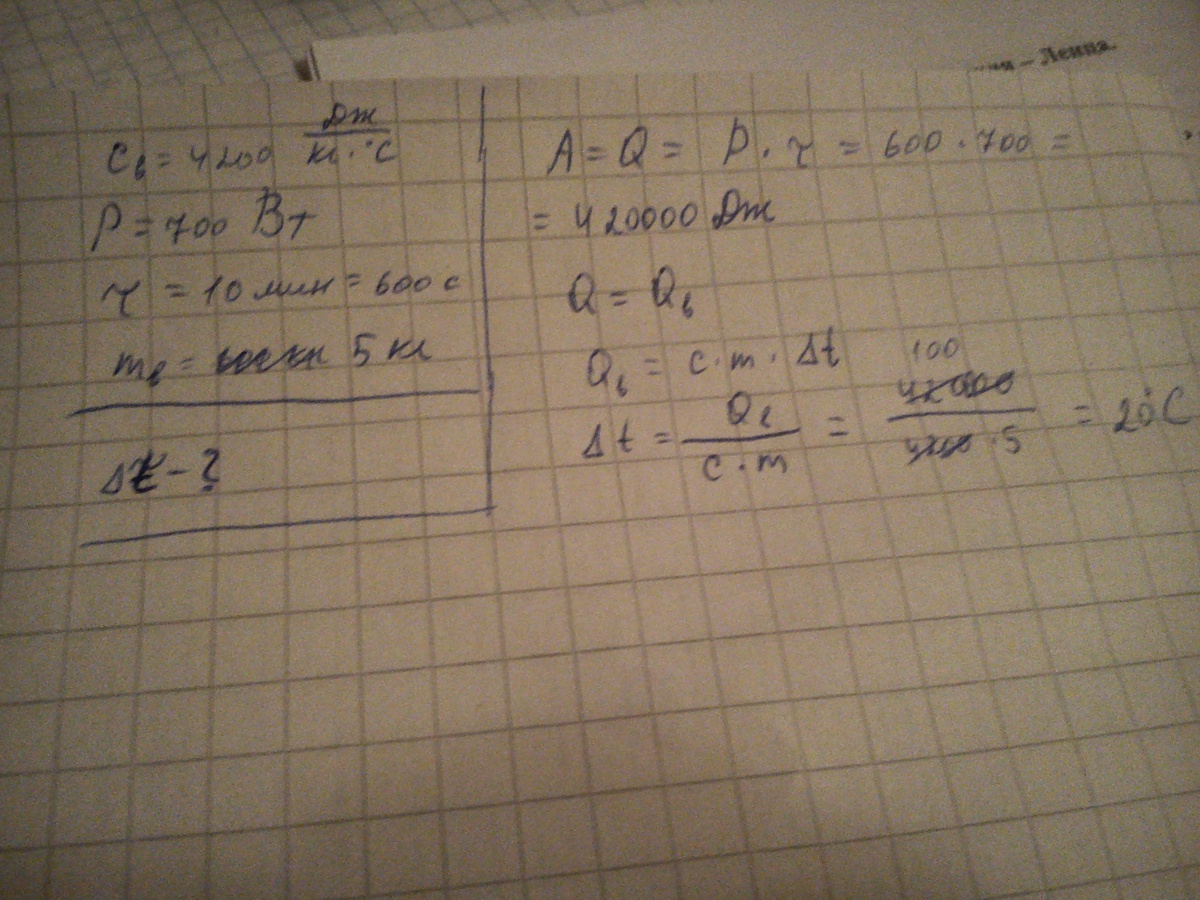 – Ленца.
Cв = 4200 Дж/кг·°C
P = 700 Вт
τ = 10 мин = 600 с
mв = 5 кг
Δt – ?
A = Q = P · τ = 600 · 700 =
= 420000 Дж
Q = Qв
Qв = c · m · Δt
Δt = Qв/c · m = 100/5 = 20°C